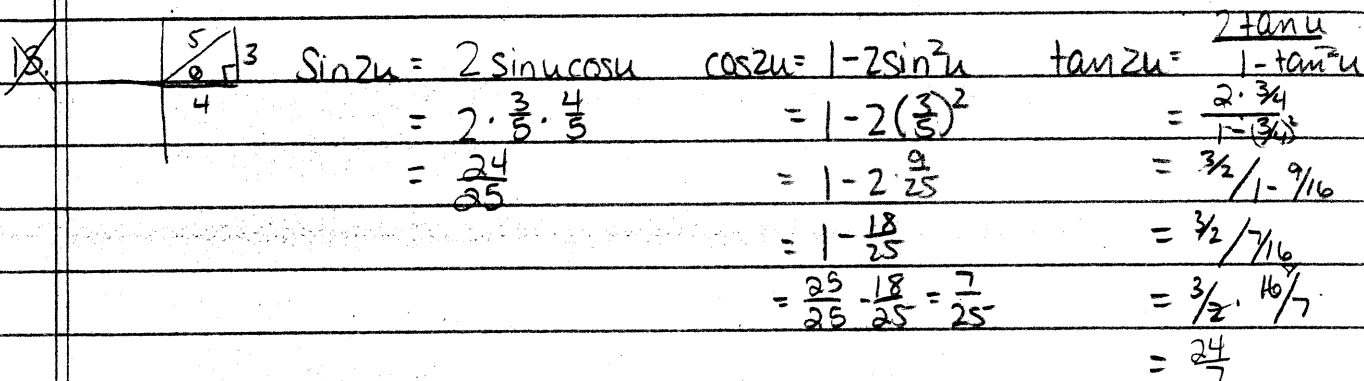 18.
5
3
θ
4
sin2u = 2 sinucosu
= 2 · 3/5 · 4/5
= 24/25
cos2u = 1-2sin²u
= 1-2(3/5)²
= 1-2·9/25
= 1-18/25
= 25/25 - 18/25 = 7/25
tan2u = 2tanu/1-tan²u
= 2·3/4/1-(3/4)²
= 3/2/1-9/16
= 3/2/7/16
= 3/2 · 16/7
= 24/7